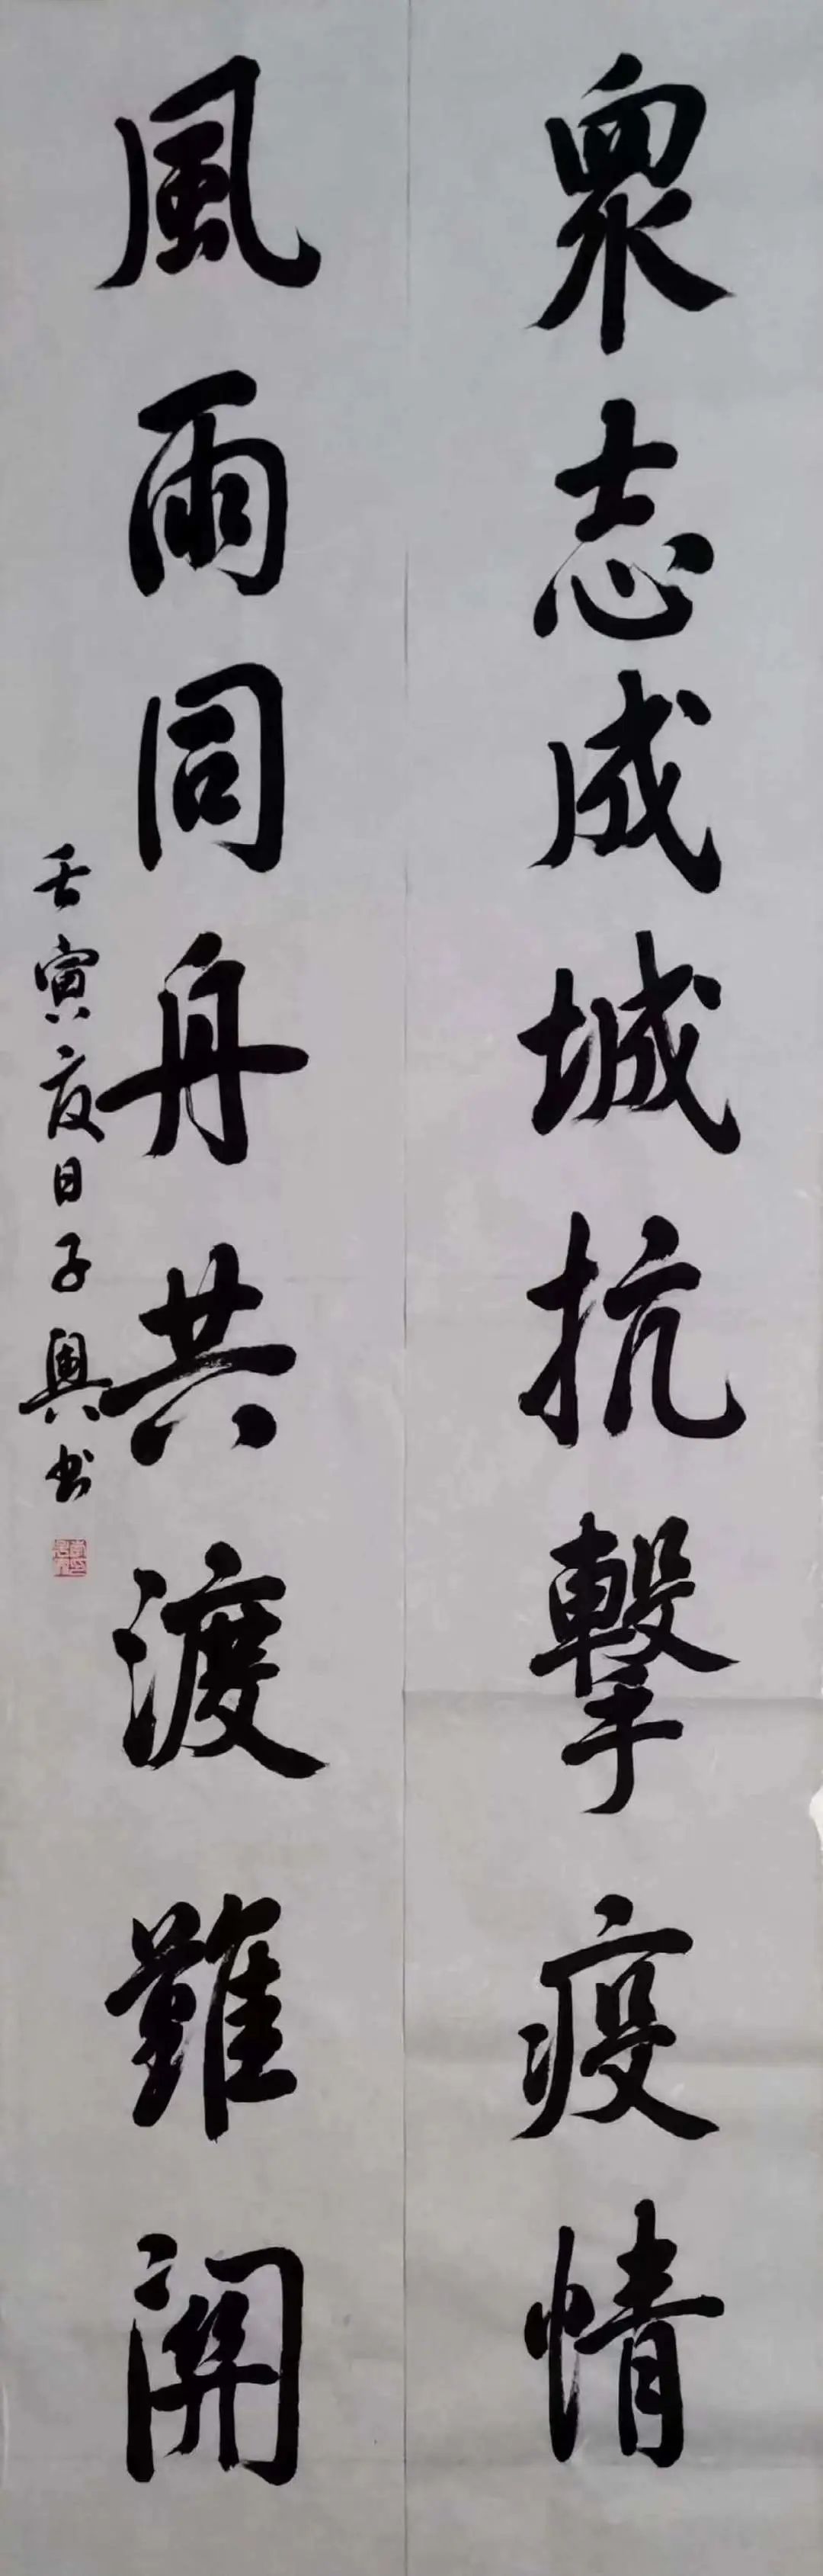 眾志成城抗擊疫情
風雨同舟共渡難關
壬寅夏日子興书